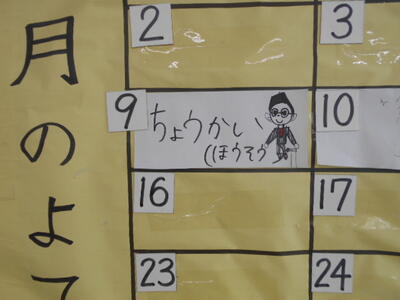 月のよて
2
3
9
ちょうかい
(ほうそう
10
16
17
23
24